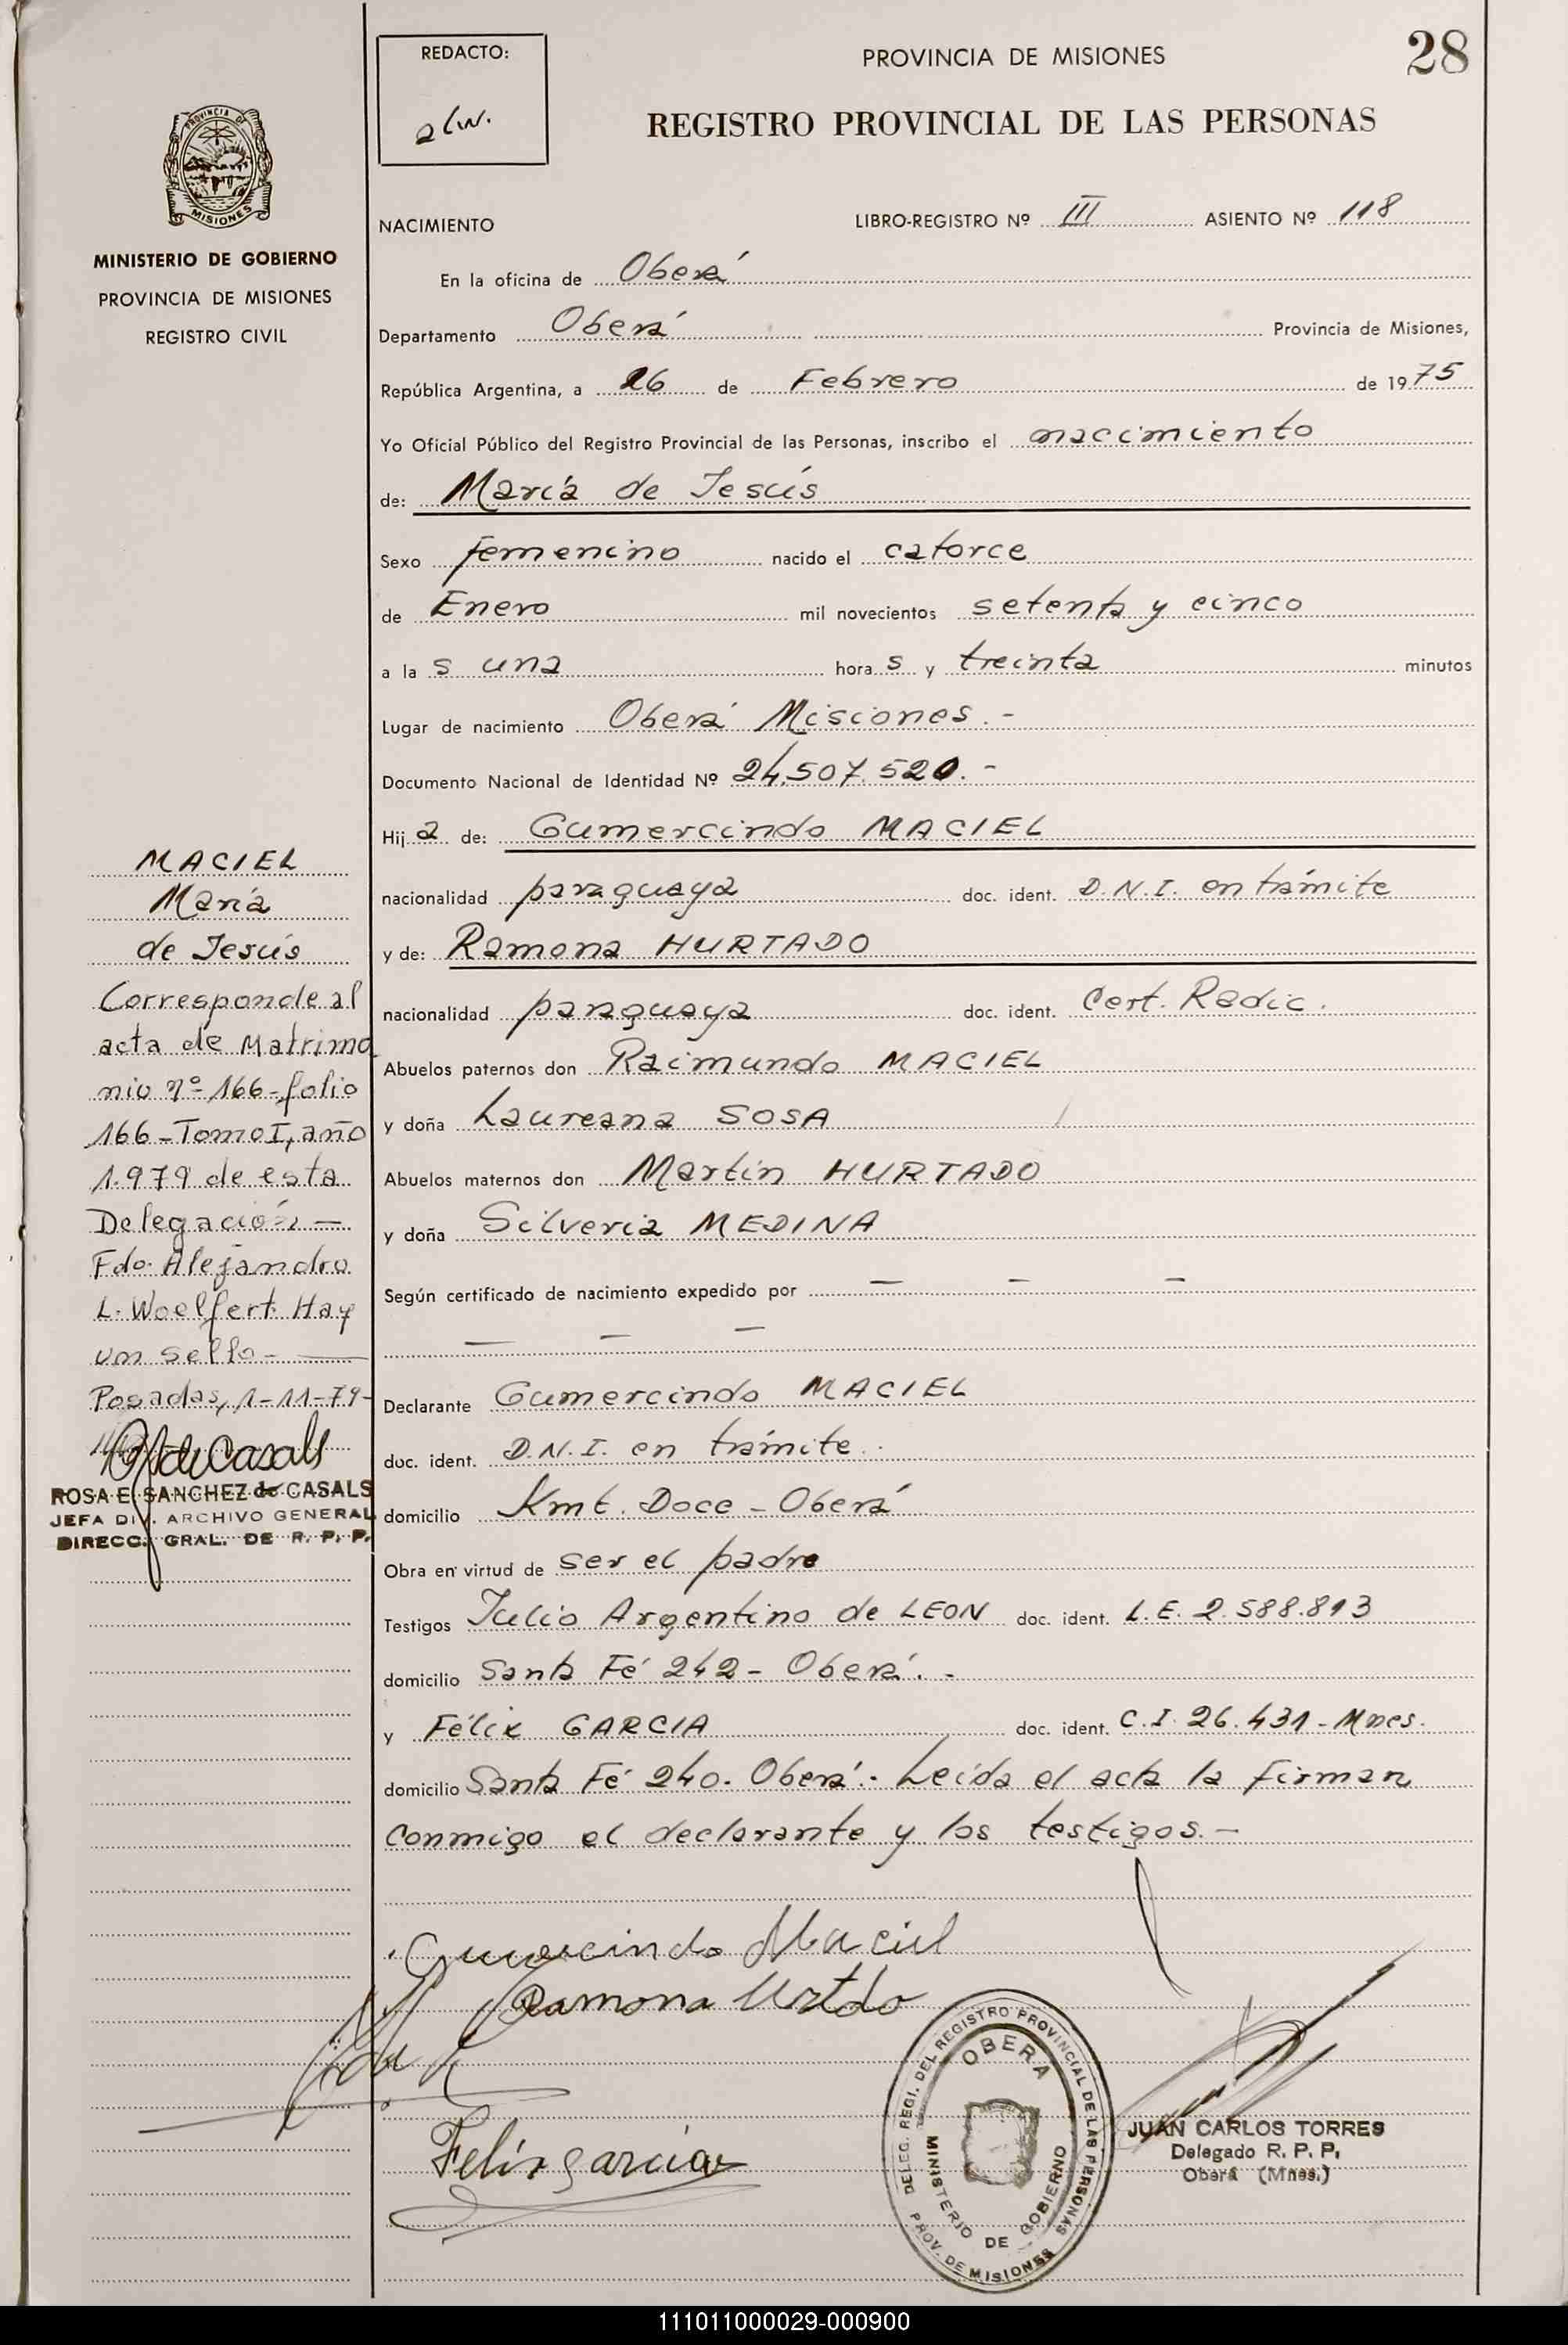 REDACTO:
alw.
PROVINCIA DE MISIONES
28
REGISTRO PROVINCIAL DE LAS PERSONAS
PROVINCIA DE
MISIONES
MINISTERIO DE GOBIERNO
PROVINCIA DE MISIONES
REGISTRO CIVIL
NACIMIENTO LIBRO-REGISTRO Nº III ASIENTO Nº 118
En la oficina de Oberá
Departamento Oberá Provincia de Misiones,
República Argentina, a 26 de Febrero de 1975
Yo Oficial Público del Registro Provincial de las Personas, inscribo el nacimiento
de: María de Jesús
Sexo femenino nacido el catorce
de Enero mil novecientos setenta y cinco
a las una horas y treinta minutos
Lugar de nacimiento Oberá Misiones.-
Documento Nacional de Identidad Nº 24.507.520.-
Hija de: Gumercindo MACIEL
nacionalidad paraguaya doc. ident. D.N.I. en trámite
y de: Ramona HURTADO
nacionalidad paraguaya doc. ident. Cert. Radic.
Abuelos paternos don Raimundo MACIEL
y doña Laureana SOSA
Abuelos maternos don Martin HURTADO
y doña Silveria MEDINA
Según certificado de nacimiento expedido por — — —
— — —
Declarante Gumercindo MACIEL
doc. ident. D.N.I. en trámite.
domicilio Kmt. Doce - Oberá
Obra en virtud de ser el padre
Testigos Julio Argentino de LEON doc. ident. L.E. 2.588.813
domicilio Santa Fé 242 - Oberá.-
y Félix GARCIA doc. ident. C.I. 26.431 - Mnes.
domicilio Santa Fé 240. Oberá.- Leída el acta la firman
conmigo el declarante y los testigos.-
MACIEL
María
de Jesús
Corresponde al
acta de Matrimo
nio nº 166-folio
166-Tomo I, año
1.979 de esta
Delegación —
Fdo. Alejandro
L. Woelfert. Hay
un sello - —
Posadas, 1-11-79-
ROSA E. SANCHEZ de CASALS
JEFA DIV. ARCHIVO GENERAL
DIRECC. GRAL. DE R. P. P.
Gumercindo Maciel
Ramona Urtdo
Felix Garcia
DELEG. REGI. DEL REGISTRO PROVINCIAL DE LAS PERSONAS
OBERA
MINISTERIO DE GOBIERNO
PROV. DE MISIONES
JUAN CARLOS TORRES
Delegado R. P. P.
Oberá (Mnes.)
111011000029-000900